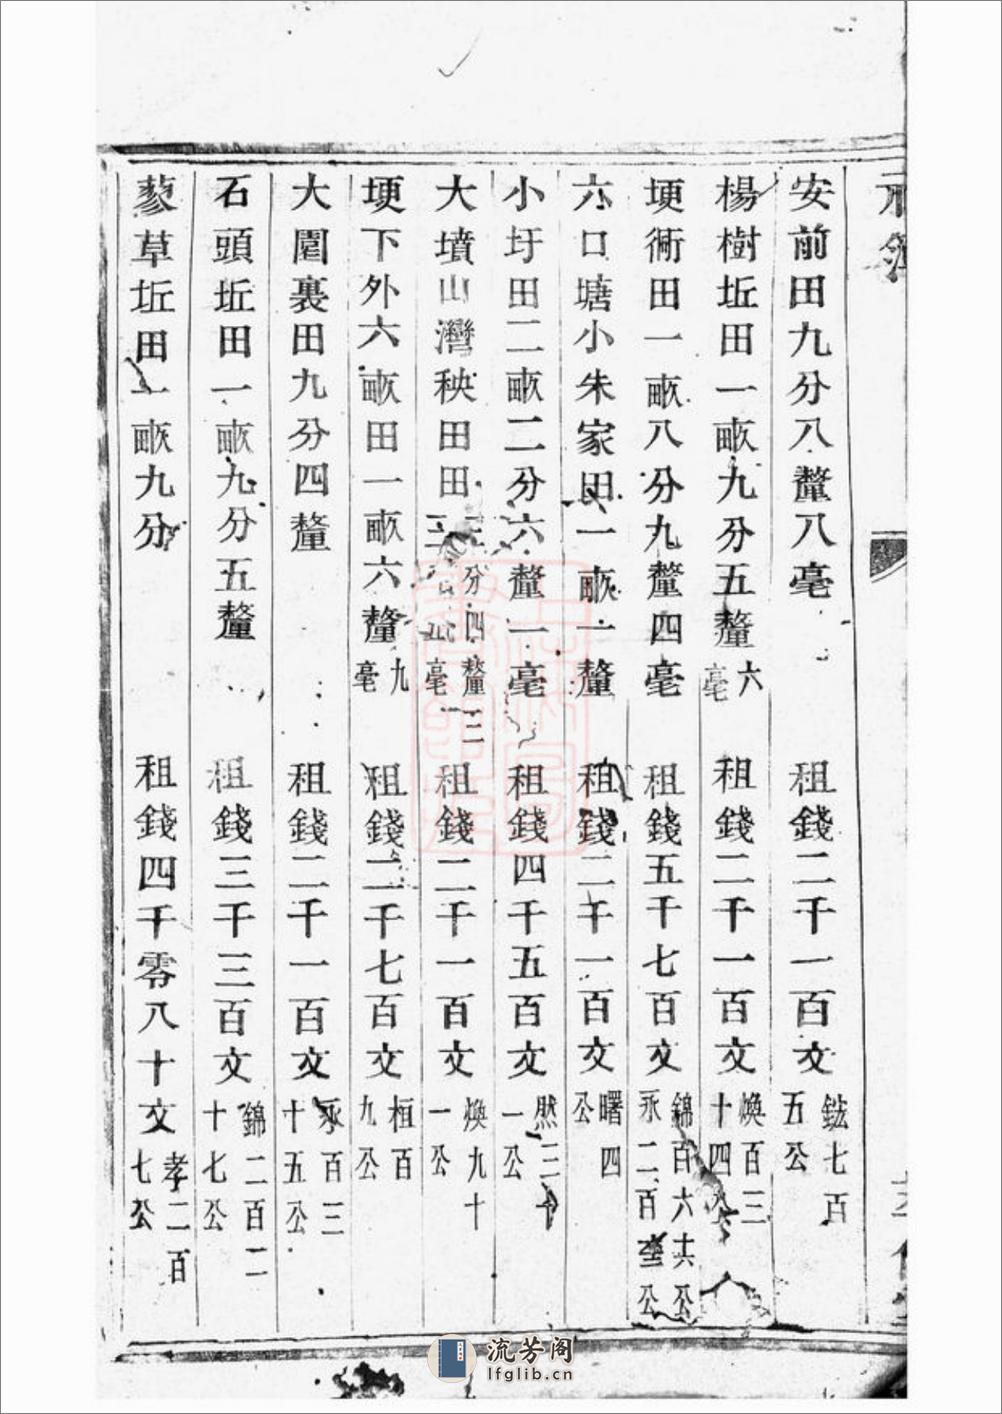 安前田九分八釐八毫 租錢二千一百文 鈜七百五公
楊樹坵田一畝九分五釐六毫 租錢二千一百文 煥百三十四公
埂衕田一畝八分九釐四毫 租錢五千七百文 錦百六十六公 永二百公
六口塘小朱家田一畝一釐 租錢二千一百文 曙四公
小圩田二畝二分六釐一毫 租錢四千五百文 然三十一公
大墳山灣秧田田 分四釐三 毫 租錢二千一百文 煥九十一公
埂下外六畝田一畝六釐九毫 租錢二千七百文 桓百九公
大圍裏田九分四釐 租錢二千一百文 永百三十五公
石頭坵田一畝九分五釐 租錢三千三百文 錦二百二十七公
蓼草坵田一畝九分 租錢四千零八十文 孝二百七公
流芳阁
lfglib.cn